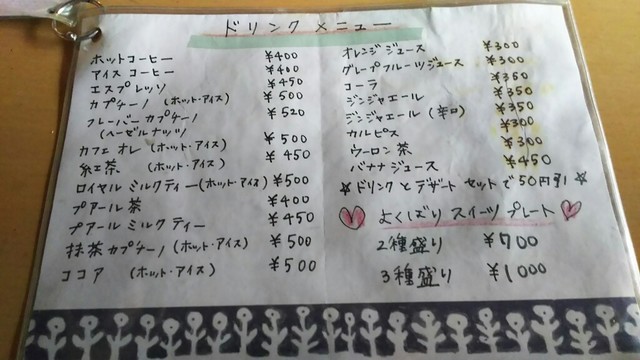 ドリンクメニュー
ホットコーヒー ¥400
アイスコーヒー ¥400
エスプレッソ ¥450
カプチーノ (ホット・アイス) ¥500
フレーバーカプチーノ ¥520
(ヘーゼルナッツ
カフェオレ (ホット・アイス) ¥500
紅茶 (ホット・アイス) ¥450
ロイヤルミルクティー(ホット・アイス) ¥500
プアール茶 ¥400
プアールミルクティー ¥450
抹茶カプチーノ (ホット・アイス) ¥500
ココア (ホット・アイス) ¥500
オレンジジュース ¥300
グレープフルーツジュース ¥300
コーラ ¥350
ジンジャエール ¥350
ジンジャエール (辛口) ¥350
カルピス ¥300
ウーロン茶 ¥300
バナナジュース ¥450
☆ドリンクとデザートセットで50円引☆
よくばりスイーツプレート
2種盛り ¥700
3種盛り ¥1000